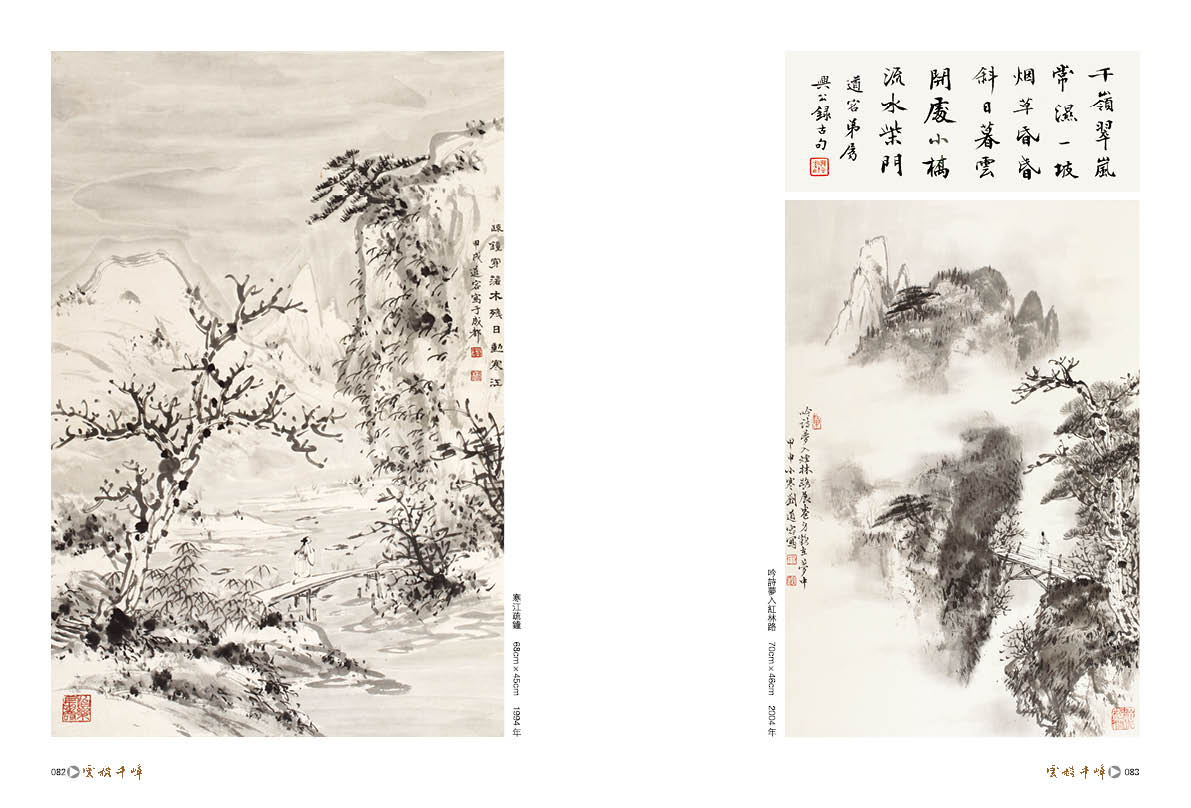 疎鐘穿落木殘日動寒江
甲戌道容寫于成都
寒江疏鐘 68cm×45cm 1994年
082 雲 千峰
千嶺翠嵐
常濕一坡
烟草昏昏
斜日暮雲
開處小橋
流水柴門
道容弟屬
興公録古句
吟詩夢入煙林路展卷身猶在夢中
甲申小寒劉道容寫
吟詩夢入紅林路 70cm×46cm 2004年
雲 千峰 083